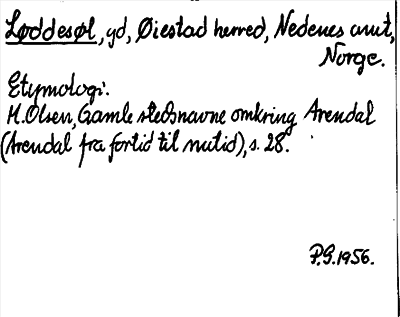 Løddesøl, gd, Øiestad herred, Nedenes amt,
Norge.
Etymologi.
M. Olsen, Gamle stedsnavne omkring Arendal
(Arendal fra fortid til nutid), s. 28.
P.G. 1956.